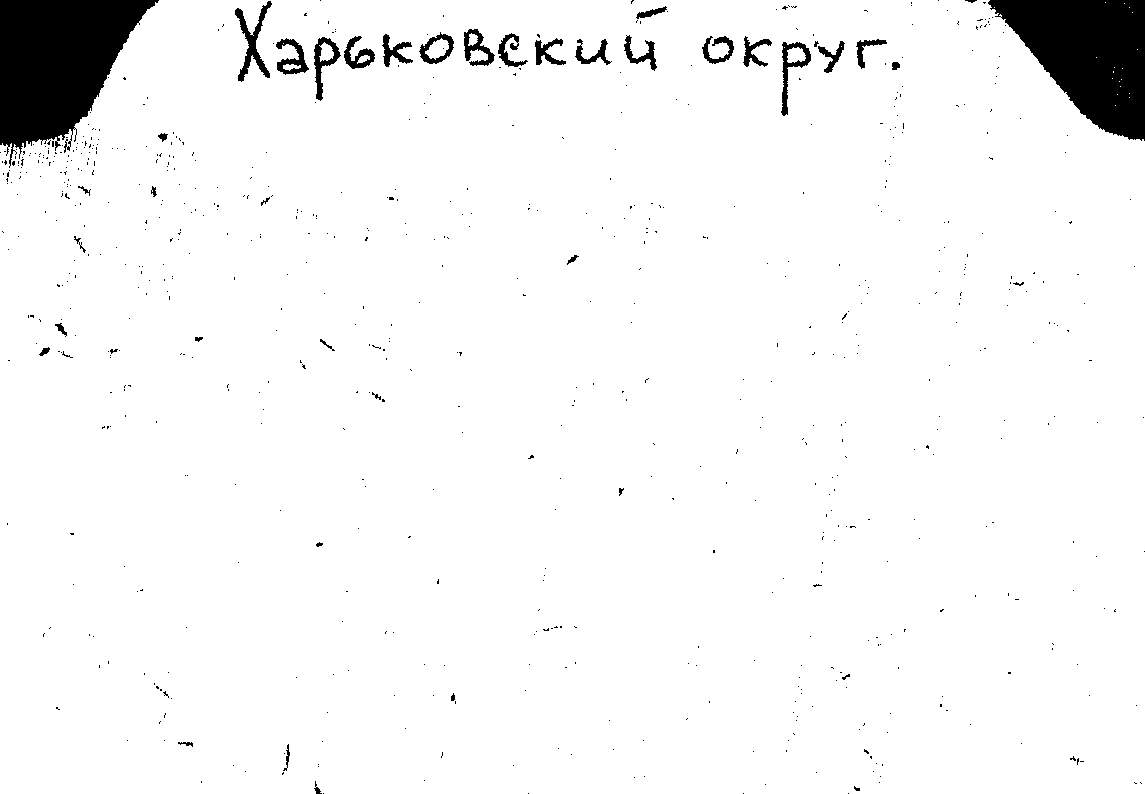 Харьковский округ.